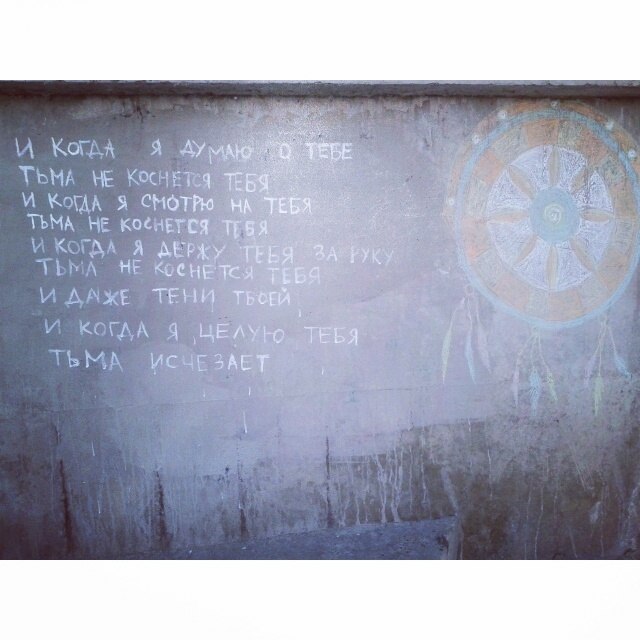 И КОГДА Я ДУМАЮ О ТЕБЕ
ТЬМА НЕ КОСНЕТСЯ ТЕБЯ
И КОГДА Я СМОТРЮ НА ТЕБЯ
ТЬМА НЕ КОСНЕТСЯ ТЕБЯ
И КОГДА Я ДЕРЖУ ТЕБЯ ЗА РУКУ
ТЬМА НЕ КОСНЕТСЯ ТЕБЯ
И ДАЖЕ ТЕНИ ТВОЕЙ
И КОГДА Я ЦЕЛУЮ ТЕБЯ
ТЬМА ИСЧЕЗАЕТ